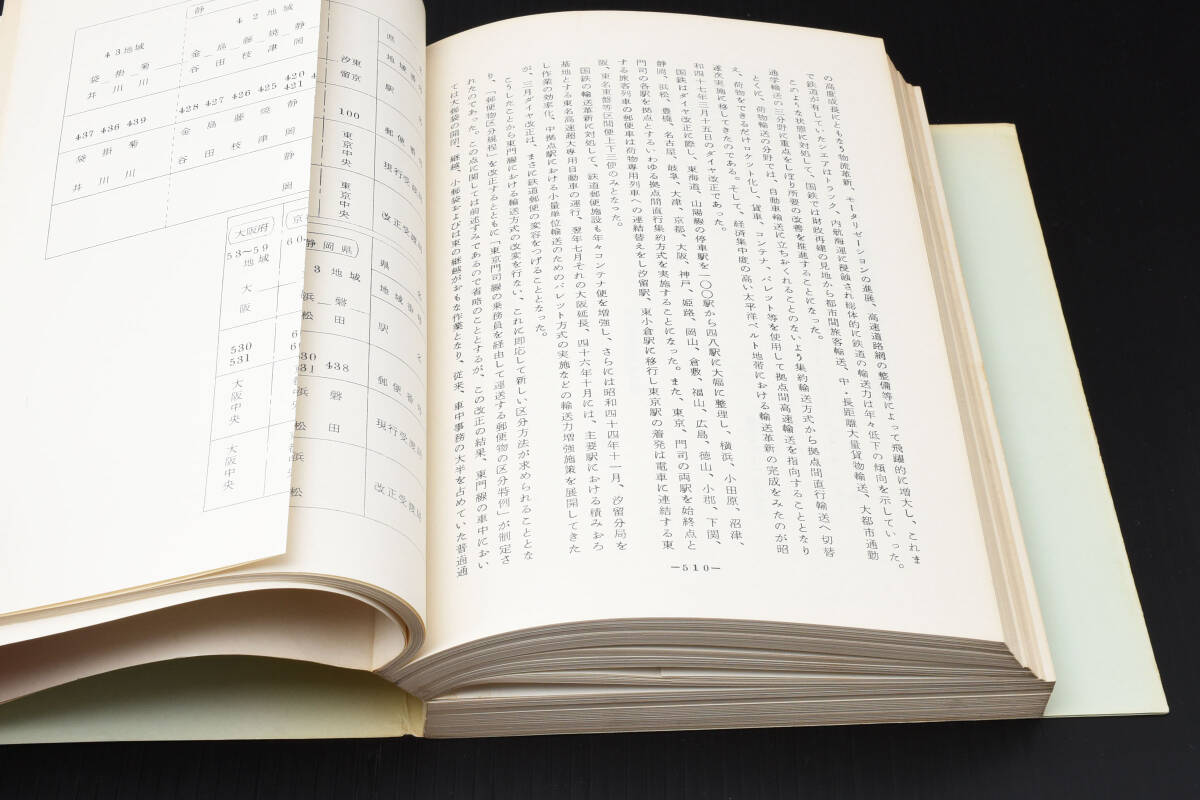 の高度成長にともなう物流革新、モータリゼーションの進展、高速道路網の整備等によって飛躍的に増大し、これま
で鉄道が有していたシェアはトラック、内航海運に浸蝕され総体的に鉄道の輸送力は年々低下の傾向を示していった。
このような状態に対処して、国鉄では財政再建の見地から都市間旅客輸送、中・長距離大量貨物輸送、大都市通勤
通学輸送の三分野に重点をしぼり所要の改善を推進することになった。
とくに、荷物輸送の分野では、自動車輸送に立ちおくれることのないよう集約輸送方式から拠点間直行輸送へ切替
え、荷物をできるだけロケット化し、貨車、コンテナ、パレット等を使用して拠点間高速輸送を指向することとなり
逐次実施に移してきたのである。そして、経済集中度の高い太平洋ベルト地帯における輸送革新の完成をみたのが昭
和四十七年三月十五日のダイヤ改正であった。
国鉄はダイヤ改正に際し、東海道、山陽線の停車駅を一〇〇駅から四八駅に大幅に整理し、横浜、小田原、沼津、
静岡、浜松、豊橋、名古屋、岐阜、大津、京都、大阪、神戸、姫路、岡山、倉敷、福山、広島、徳山、小郡、下関、
門司の各駅を拠点とするいわゆる拠点間直行集約方式を実施することになった。また、東京、門司の両駅を始終点と
する旅客列車の郵便車は荷物専用列車への連結替えをし汐留駅、東小倉駅に移行し東京駅の着発は電車に連結する東
阪、東名東盤等区間便上下三便のみとなった。
国鉄の輸送革新に対処して、鉄道郵便施設も年々コンテナ便を増強し、さらには昭和四十四年十一月、汐留分局を
基地とする東名高速超大専用自動車の運行、翌年七月それの大阪延長、四十六年十月には、主要駅における積みおろ
し作業の効率化、中拠点駅における小量単位輸送のためのパレット方式の実施などの輸送力増強施策を展開してきた
が、三月ダイヤ改正は、まさに鉄道郵便の変容をつげることとなった。
こうしたことから東門線における輸送方式の改変を行ない、これに即応して新しい区分方法が求められることとな
り、「郵便物区分規程」を改正するとともに「東京門司線の乗務員を経由して運送する郵便物の区分特例」が制定さ
れたのであった。この点に関しては前述すみてあるので省略のこととするが、この改正の結果、東門線の車中におい
ては大郵袋の開閉、継越、小郵袋および は束の継越がおもな作業となり、従来、車中事務の大半を占めていた普通通
—510—
県
地域番
駅
郵便番号
現行受渡局
改正受渡局
東京
汐留
100
東京中央
東京中央
静
42地域
静
焼津
藤枝
島田
金谷
岡
43地域
菊川
掛川
袋井
420
421
425
426
427
428
439
436
437
静岡
焼津
藤枝
島田
金谷
菊川
掛川
袋井
静岡
県名
地域番号
駅名
郵便番号
現行受渡局
改正受渡局
静岡県
3地域
磐田
浜松
438
30
31
磐田
浜松
浜松
大阪府
53〜59
地域
大阪
530
531
大阪中央
大阪中央